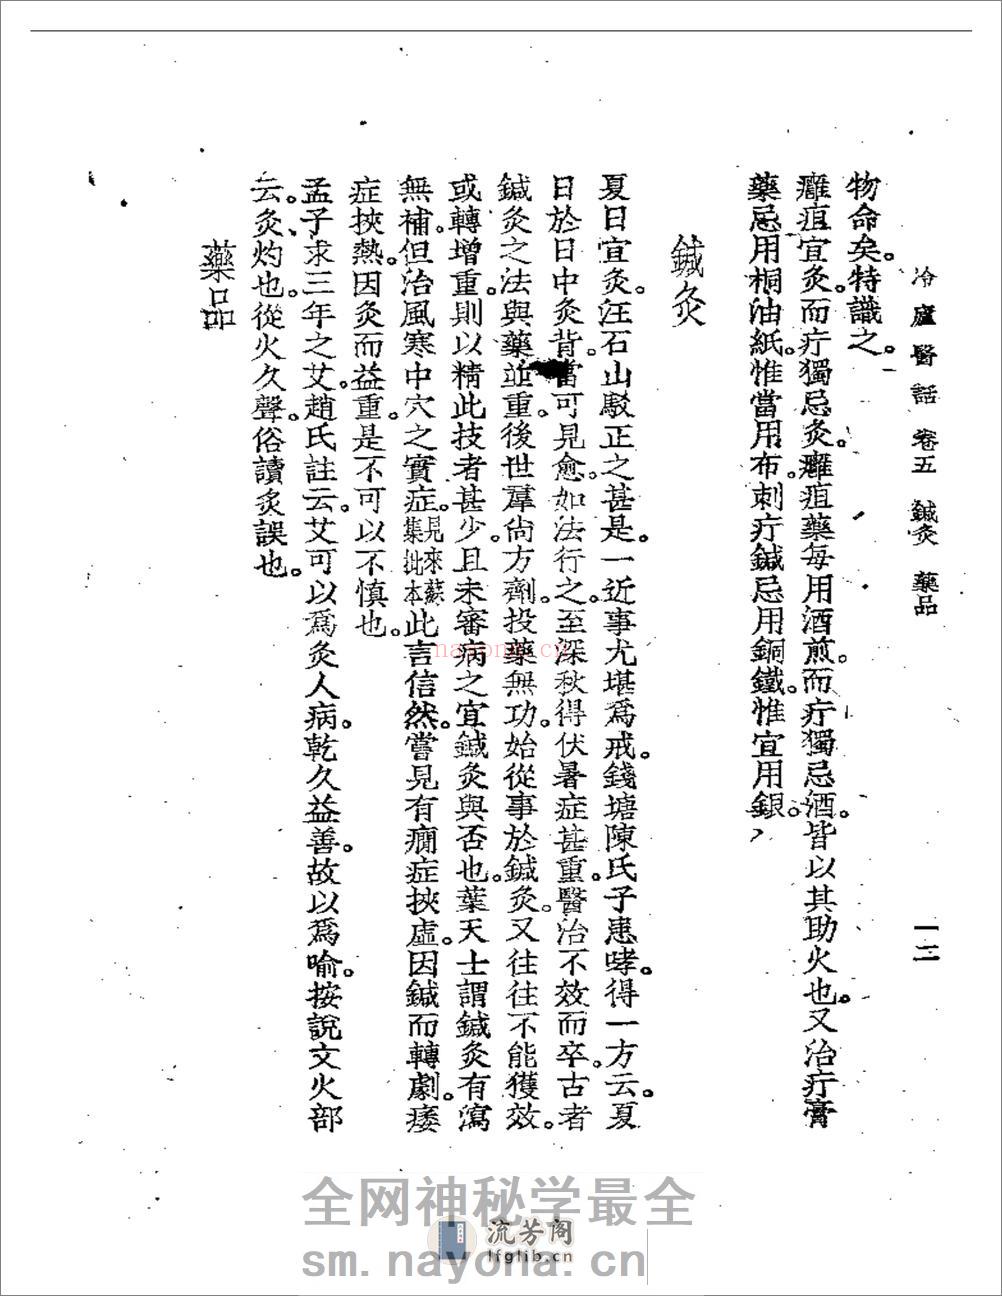 冷廬醫話 卷五 鍼灸 藥品 一二
物命矣。特識之。
癰疽宜灸。而疔獨忌灸。癰疽藥每用酒煎。而疔獨忌酒。皆以其助火也。又治疔膏
藥忌用桐油紙。惟當用布。刺疔鍼忌用銅鐵。惟宜用銀。
鍼灸
夏日宜灸。汪石山駁正之甚是。一近事尤堪爲戒。錢塘陳氏子患哮。得一方云。夏
日於日中灸背。當可見愈。如法行之。至深秋得伏暑症甚重。醫治不效而卒。古者
鍼灸之法與藥並重。後世羣尚方劑。投藥無功。始從事於鍼灸。又往往不能獲效。
或轉增重。則以精此技者甚少。且未審病之宜鍼灸與否也。葉天士謂鍼灸有瀉
無補。但治風寒中穴之實症。見來蘇集批本此言信然。嘗見有癇症挾虛。因鍼而轉劇。痿
症挾熱。因灸而益重。是不可以不慎也。
孟子求三年之艾。趙氏註云。艾可以爲灸人病。乾久益善。故以爲喻。按說文火部
云。灸、灼也。從火久聲。俗讀炙誤也。
藥品
nayona.cn
全网神秘学最全
流芳阁
lfglib.cn
sm.nayona.cn